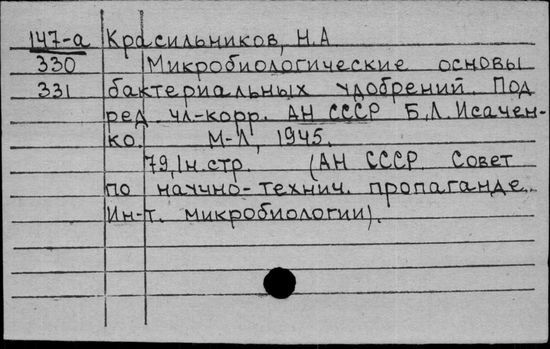 147-а Красильников, Н.А
330 Микробиологические основы
331 бактериальных удобрений. Под
ред. чл-корр. АН СССР Б.Л. Исачен-
ко. М-Л, 1945.
79, 1н. стр. (АН СССР. Совет
по научно-технич. пропаганде.
Ин-т. микробиологии).